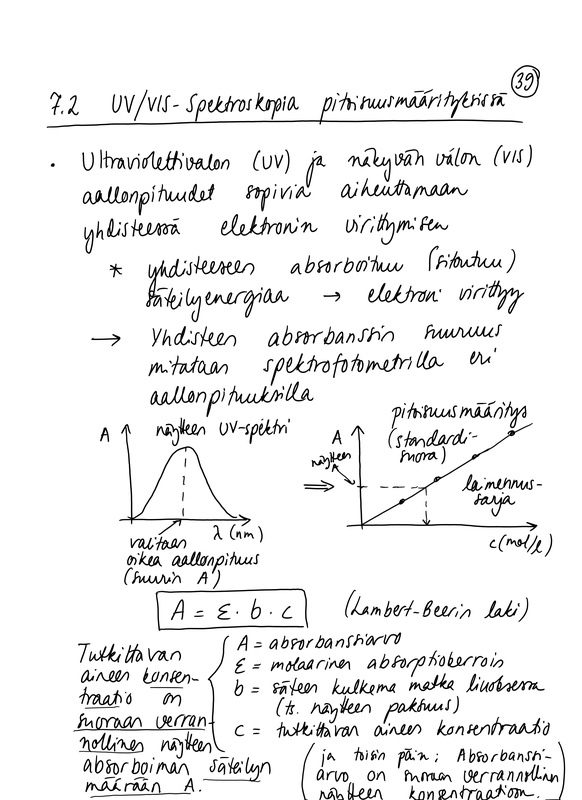 39
7.2 UV/VIS-Spektroskopia pitoisuusmäärityksissä
• Ultraviolettivalon (UV) ja näkyvän valon (VIS)
aallonpituudet sopivia aiheuttamaan
yhdisteessä elektronin virittymisen
* yhdisteeseen absorboituu (sitoutuu)
säteilyenergiaa → elektroni virittyy
→ Yhdisteen absorbanssin suuruus
mitataan spektrofotometrilla eri
aallonpituuksilla
A
näytteen UV-spektri
λ (nm)
valitaan
oikea aallonpituus
(suurin A)
⇒
pitoisuusmääritys
(standardi-
suora)
A
näytteen
A
laimennus-
sarja
c(mol/l)
A = ε · b · c (Lambert-Beerin laki)
Tutkittavan
aineen konsen-
traatio on
suoraan verran-
nollinen näytteen
absorboiman säteilyn
määrään A.
A = absorbanssiarvo
ε = molaarinen absorptiokerroin
b = säteen kulkema matka liuoksessa
(ts. näytteen paksuus)
c = tutkittavan aineen konsentraatio
(ja toisin päin; Absorbanssi-
arvo on suoraan verrannollinen
näytteen konsentraatioon.)